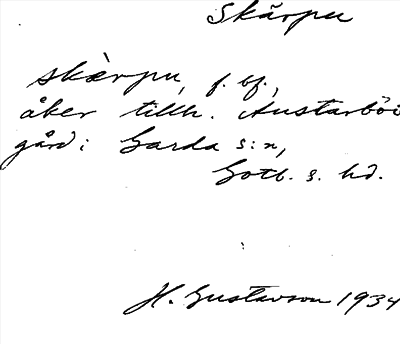 Skärpu
skàrpu, f. bf.,
åker tillh. Austarböi
gård i Garda s:n,
Gotl. s. hd.
H. Gustavson 1934